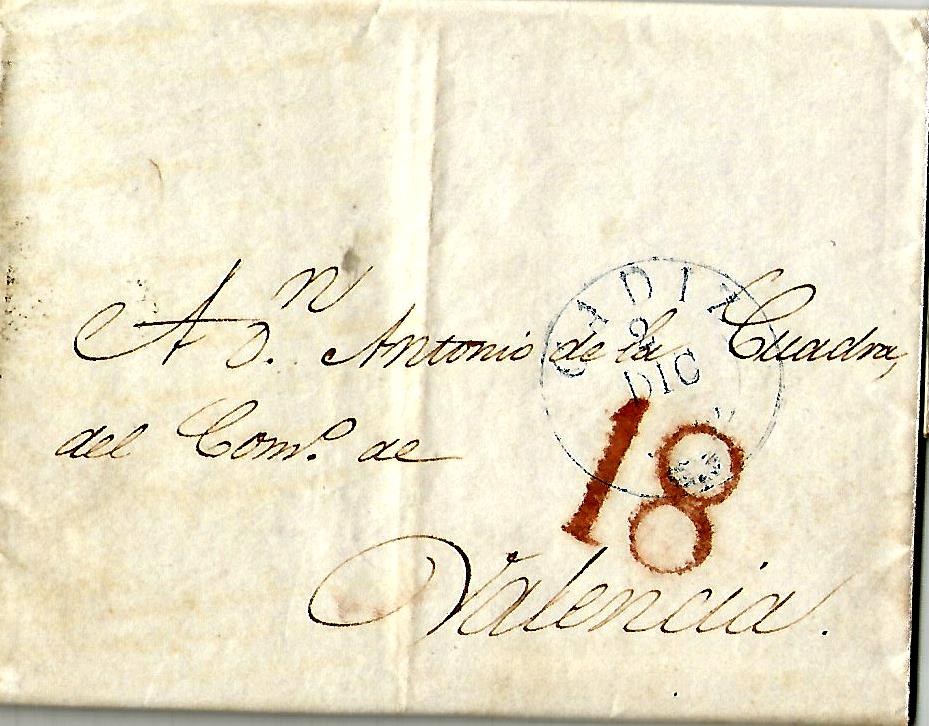 A D.n Antonio de la Cuadra,
del Como. de
Valencia.
CADIZ
DIC
18